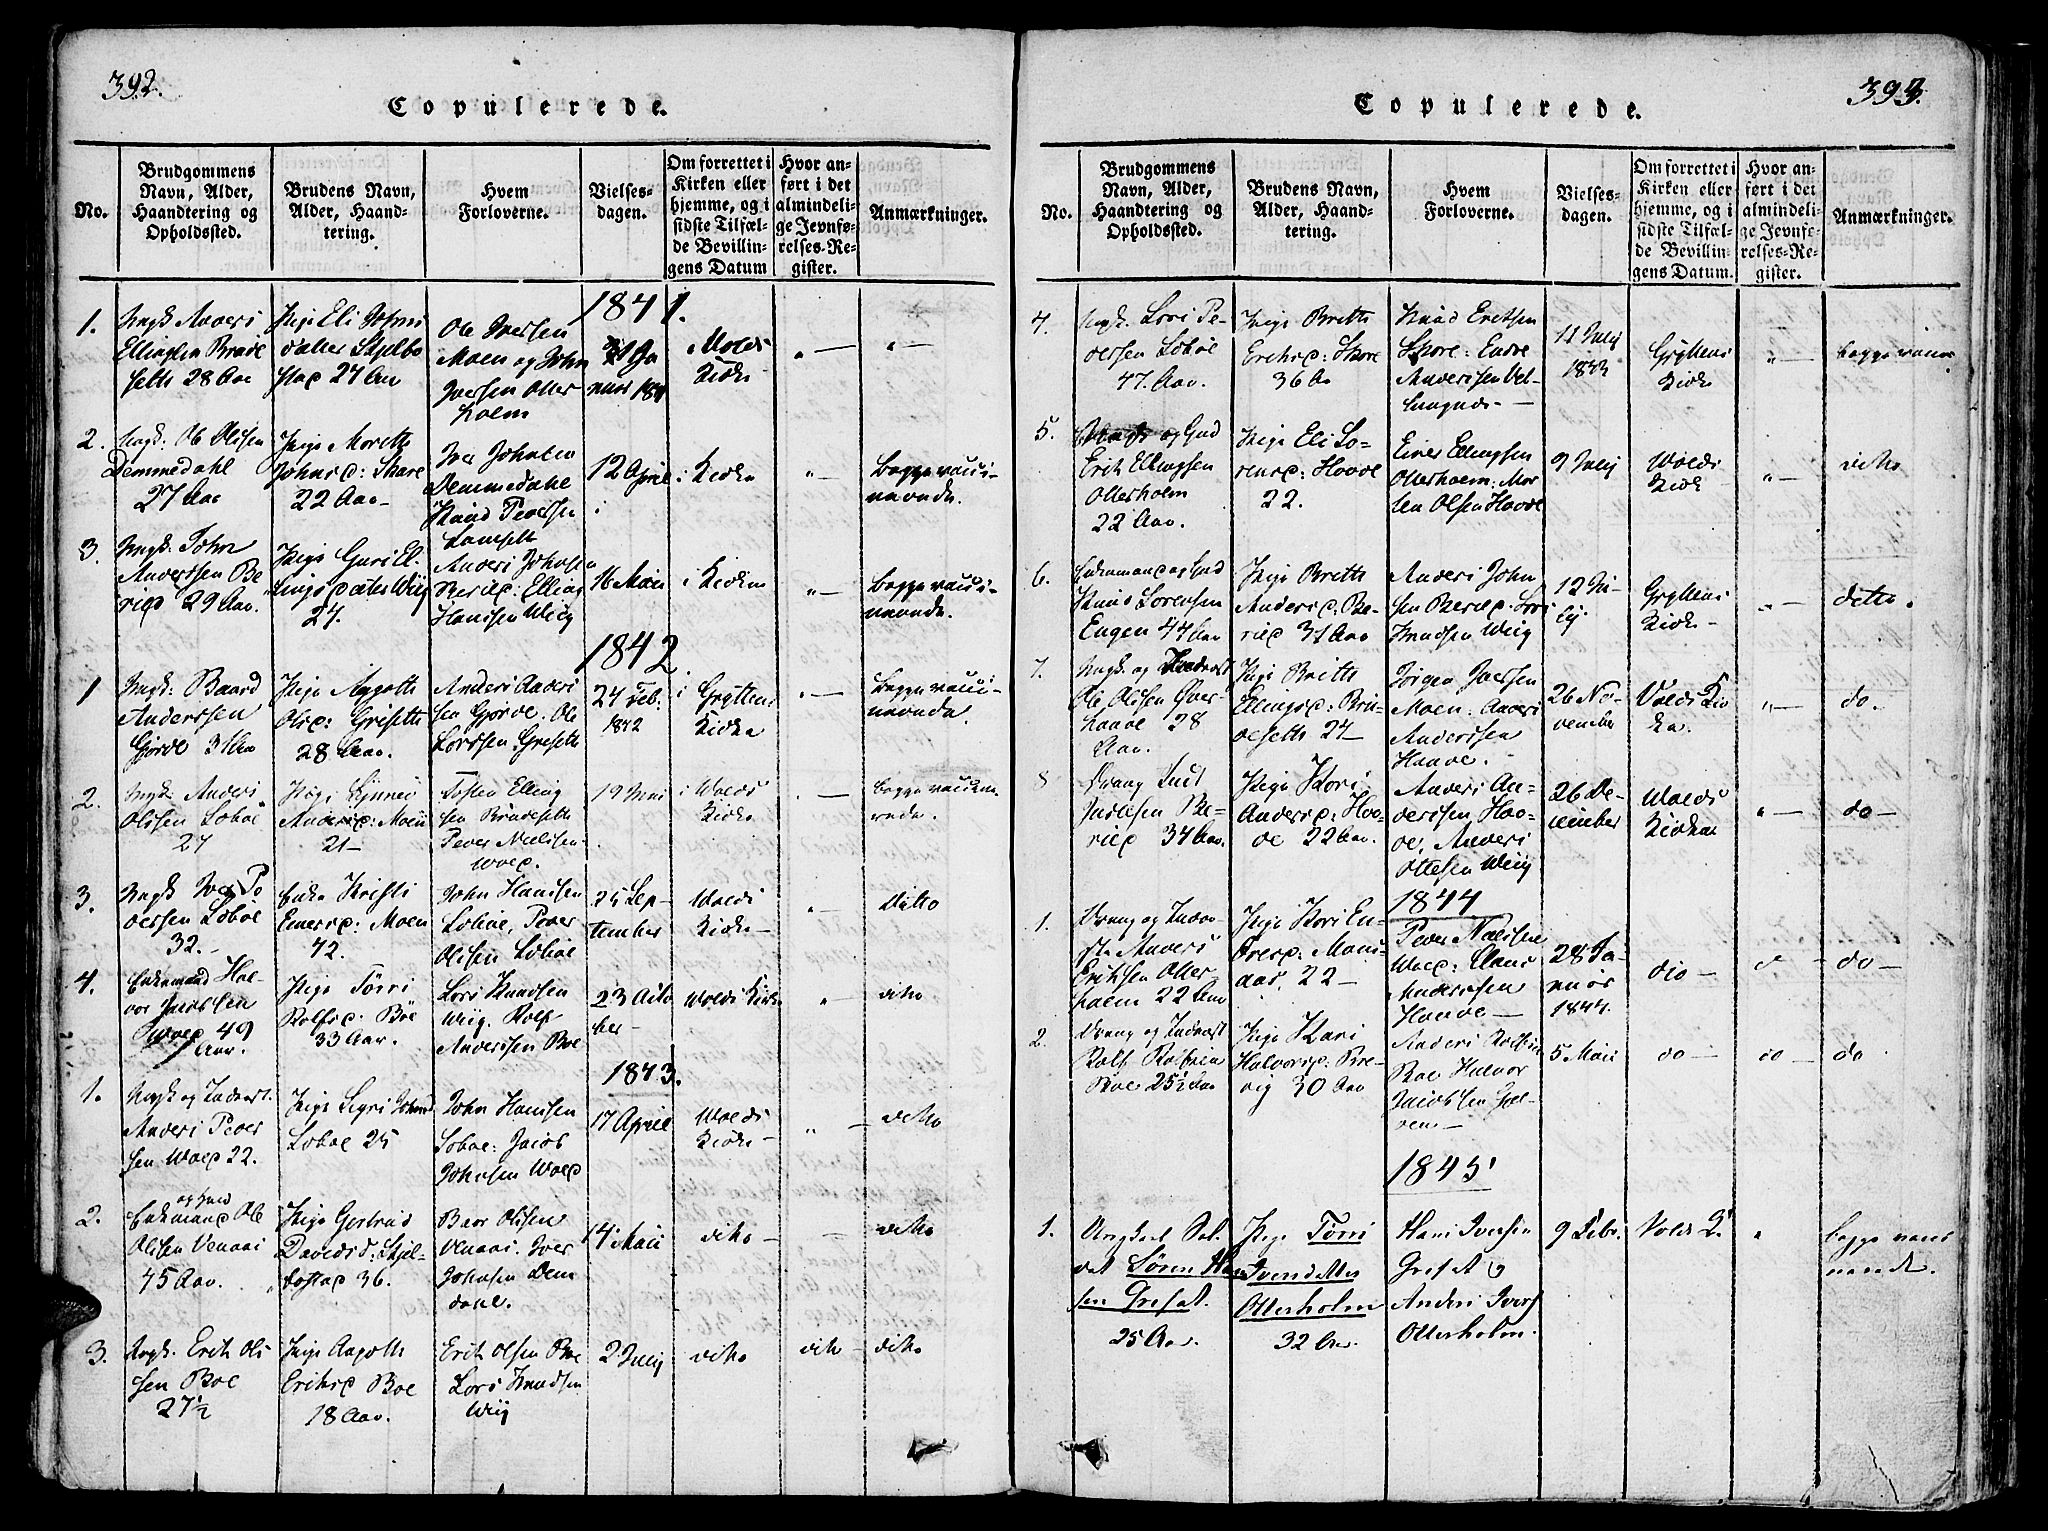 392.
Copulerede.
No.
Brudgommens Navn, Alder, Haandtering og Opholdssted.
Brudens Navn, Alder, Haandtering.
Hvem Forloverne.
Vielsesdagen.
Om forrettet i Kirken eller hjemme, og i sidste Tilfælde Bevillingens Datum
Hvor anført i det almindelige Jevnførelses-Register.
Anmærkninger.
1841.
1.
Ungk. Anders
Ellingsen Brude
seth 28 Aar
Pige Eli Johns
datter Skjelbo
stad 27 Aar
Ole Iversen
Moen og John
Iversen Otter
holm
Volds
Kirke
2.
Ungk. Ole Olsen
Demmedahl
27 Aar
Pige Marethe
Johnsd: Skare
22 Aar
Iver Johnsen
Demmedahl
Knud Pedersen
12 April
i Kirken
Begge vacci-
nerede.
3.
Ungk: John
Anderssen Be
ried 29 Aar.
Pige Guri El-
lingsdatter Wiig
24.
Anders Johnsen
Beried: Elling
Hanssen Wiig
16 Maii
i Kirken
Begge vacci-
nerede.
1842
1
Ungk: Baard
Anderssen
Gjerde 31 Aar
Pige Aagothe
Olsd: Griseth
28 Aar.
Anders Anders
sen Gjerde. Ole
Lordsen Griseth
24 Feb:
1842
i Gryttens
Kirke
Begge vacci-
nerede.
2.
Ungk. Anders
Olsen Søbøe
27
Pige Synnev
Andersd: Moen
21
Elling
sen Brudeseth
Peder Nielsen
Wold.
19 Mai
i Wolds
Kirke
Begge vaccine-
rede.
3.
Ungk Iver Pe
dersen Søbøe
32.
Enke Kristi
Einersd: Moen
42.
John Hanssen
Søbøe, Peder
Olsen Søbøe
25 Sep-
tember
Wolds
Kirke
Ditto
4.
Enkemand Hal-
vor Jacobsen
49
Aar.
Pige Tørri
Rolfsd: Bøe
33 Aar.
Lars Knudsen
Wiig. Rolf
Anderssen Boe
23 Octo
ber
Wolds Kirke
ditto
1843.
1.
Ungk og Indерst.
Anders Peder
sen Wold 22.
Pige Sigri Johnsd
Søbøe 25
John Hanssen
Søboe: Jacob
Johnsen Wold
17 April
Wolds
Kirke
ditto
2.
og Huusm
Enkemand Ole
Olsen Venaas
45 Aar.
Pige Gertrud
Davidsd: Skjel-
bostad 36.
Baar Olsen
Venaas. Iver
Johnsen Dem
dahl.
14 Maii
ditto
ditto
3.
Ungk. Erik Ol
sen Boe
27½
Pige Aagothe
Eriksd Boe
18 Aar.
Erik Olsen Boe
Lars Knudsen
Wiig
2 Julij
ditto
ditto
ditto
393.
Copulerede.
No.
Brudgommens Navn, Alder, Haandtering og Opholdssted.
Brudens Navn, Alder, Haandtering.
Hvem Forloverne.
Vielsesdagen.
Om forrettet i Kirken eller hjemme, og i sidste Tilfælde Bevillingens Datum.
Hvor anført i det almindelige Jevnførelses-Register.
Anmærkninger.
4.
Ungk. Lars Pe-
dersen Søbøe
47. Aar.
Pige Brithe
Eriksd: Skore
36 Aar
Knud Eriksen
Skore: Endre
Anderssen
11 Julij
1843
Gryttens
Kirke
5.
Erik Ellingsen
Otterholm
22 Aar.
Pige Eli Lo-
rensd: Hovde
22.
Einer Ellingsen
Otterholm: Mor
ten Olsen Hovde
9 Julij
Wolds
Kirke
ditto
6.
Enkemand og Grd
Knud Sørensen
Engen 44 Aar
Pige Brithe
Andersd: Be-
ried 31 Aar
Anders John
sen Beried. Lars
Knudsen Wiig
12 Ju-
lij.
Gryttens
Kirke
detto.
7.
Ungk. og Inderst
Ole Olsen Over-
haave 28
Aar.
Pige Brithe
Ellingsd: Bru-
deseth 27
Jørgen Iversen
Moen: Anders
Anderssen
Haave.
26 No-
vember
Volds Kir
ke.
do.
8
34 Aar.
Pige Kari
Andersd: Hov-
de 22 Aar.
Anders An-
derssen Hov-
de. Anders
Ottesen Wiig
26 De-
cember
Wolds
Kirke
do
1844
1.
Dreng og Inder-
st. Anders
Eriksen Otter
holm 22 Aar
22
Peder Nielsen
Wold: Claus
Anderssen
Haave
28 Ja-
nuar
1844.
dio
do
2.
Dreng og Inderst
Rolf Rolfsen
Boe 25½ Aar
Pige Kari
Halvorsd: Bre-
vig 30 Aar
Anders Rolfsen
Boe Halvor
Jacobsen
5 Maii
do
do
do
1845
1.
Ungkarl Sol-
dat Søren Han
sen Greset.
25 Aar.
Pige Tørri
Iversdatter
Otterholm
32 Aar.
Hans Iversen
Greset og
Anders Ivers
Otterholm.
9 Febr.
Volds K.
begge vacci
nerede.